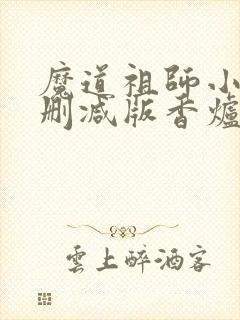 魔道祖師小
刪减版香爐
雲上醉酒客